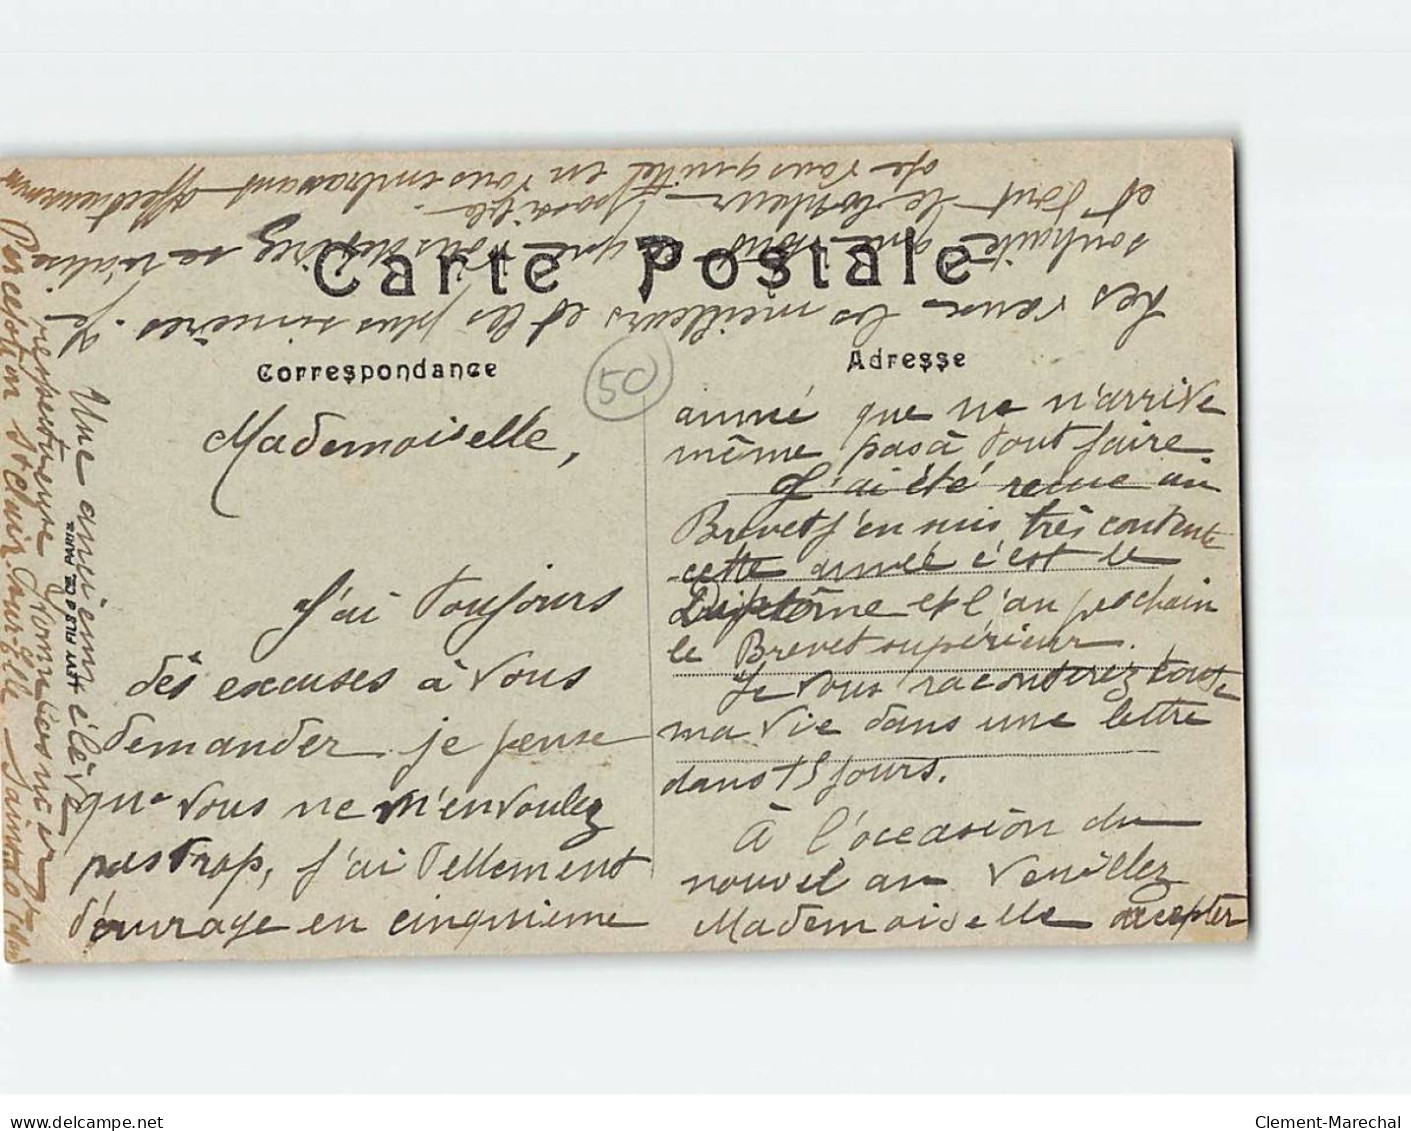 Carte Postale
Correspondance
Adresse
50
Mademoiselle,
J'ai toujours
des excuses à vous
demander je pense
que vous ne m'en voulez
pas trop, j'ai tellement
d'ouvrage en cinquième
année que je n'arrive
même pas à tout faire
J'ai été reçue au
Brevet j'en suis très contente
cette année c'est le
Diplôme et l'an prochain
le Brevet supérieur.
Je vous raconterez toute
ma vie dans une lettre
dans 15 jours.
À l'occasion du
nouvel an veuillez
Mademoiselle accepter
les vœux les meilleurs et les plus sincères. Je
souhaite que tout ce que vous désirez se réalise
et tout le bonheur possible.
Je vous quitte en vous embrassant affectueusement
Une ancienne élève
respectueuse Yonne
Perception St Clair-sur-Elle
PARIS